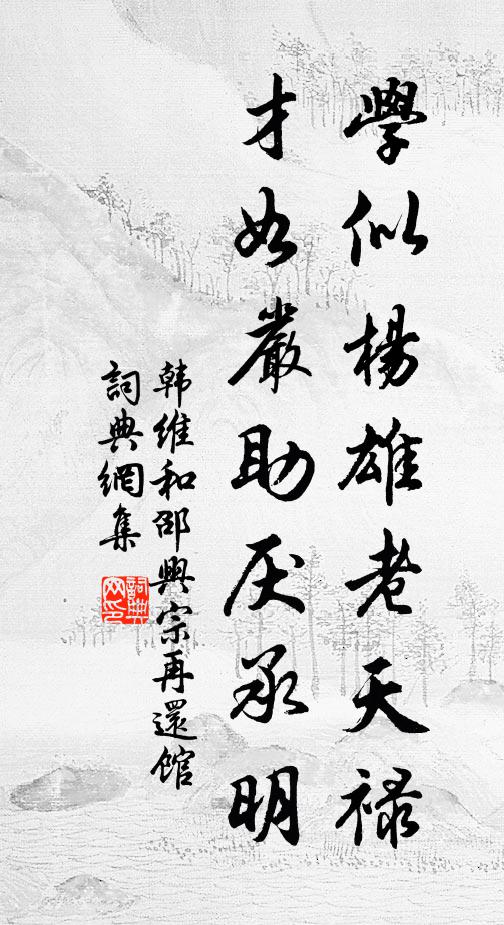 學似楊雄老天祿
才如嚴助厌承明
韩維和邵興宗再還館
詞典網集
詞典